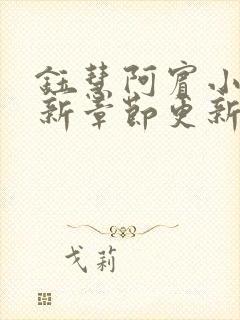 鈺慧阿賓小
新章節更新
戈莉